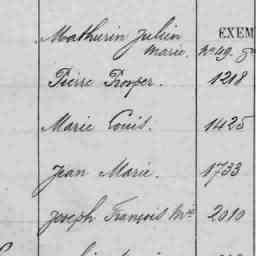 EXEM
Mathurin Julien
Marie. N° 49.
Pierre Prosper. 1218
Marie Louis. 1425
Jean Marie. 1733
Joseph François Mie 2010